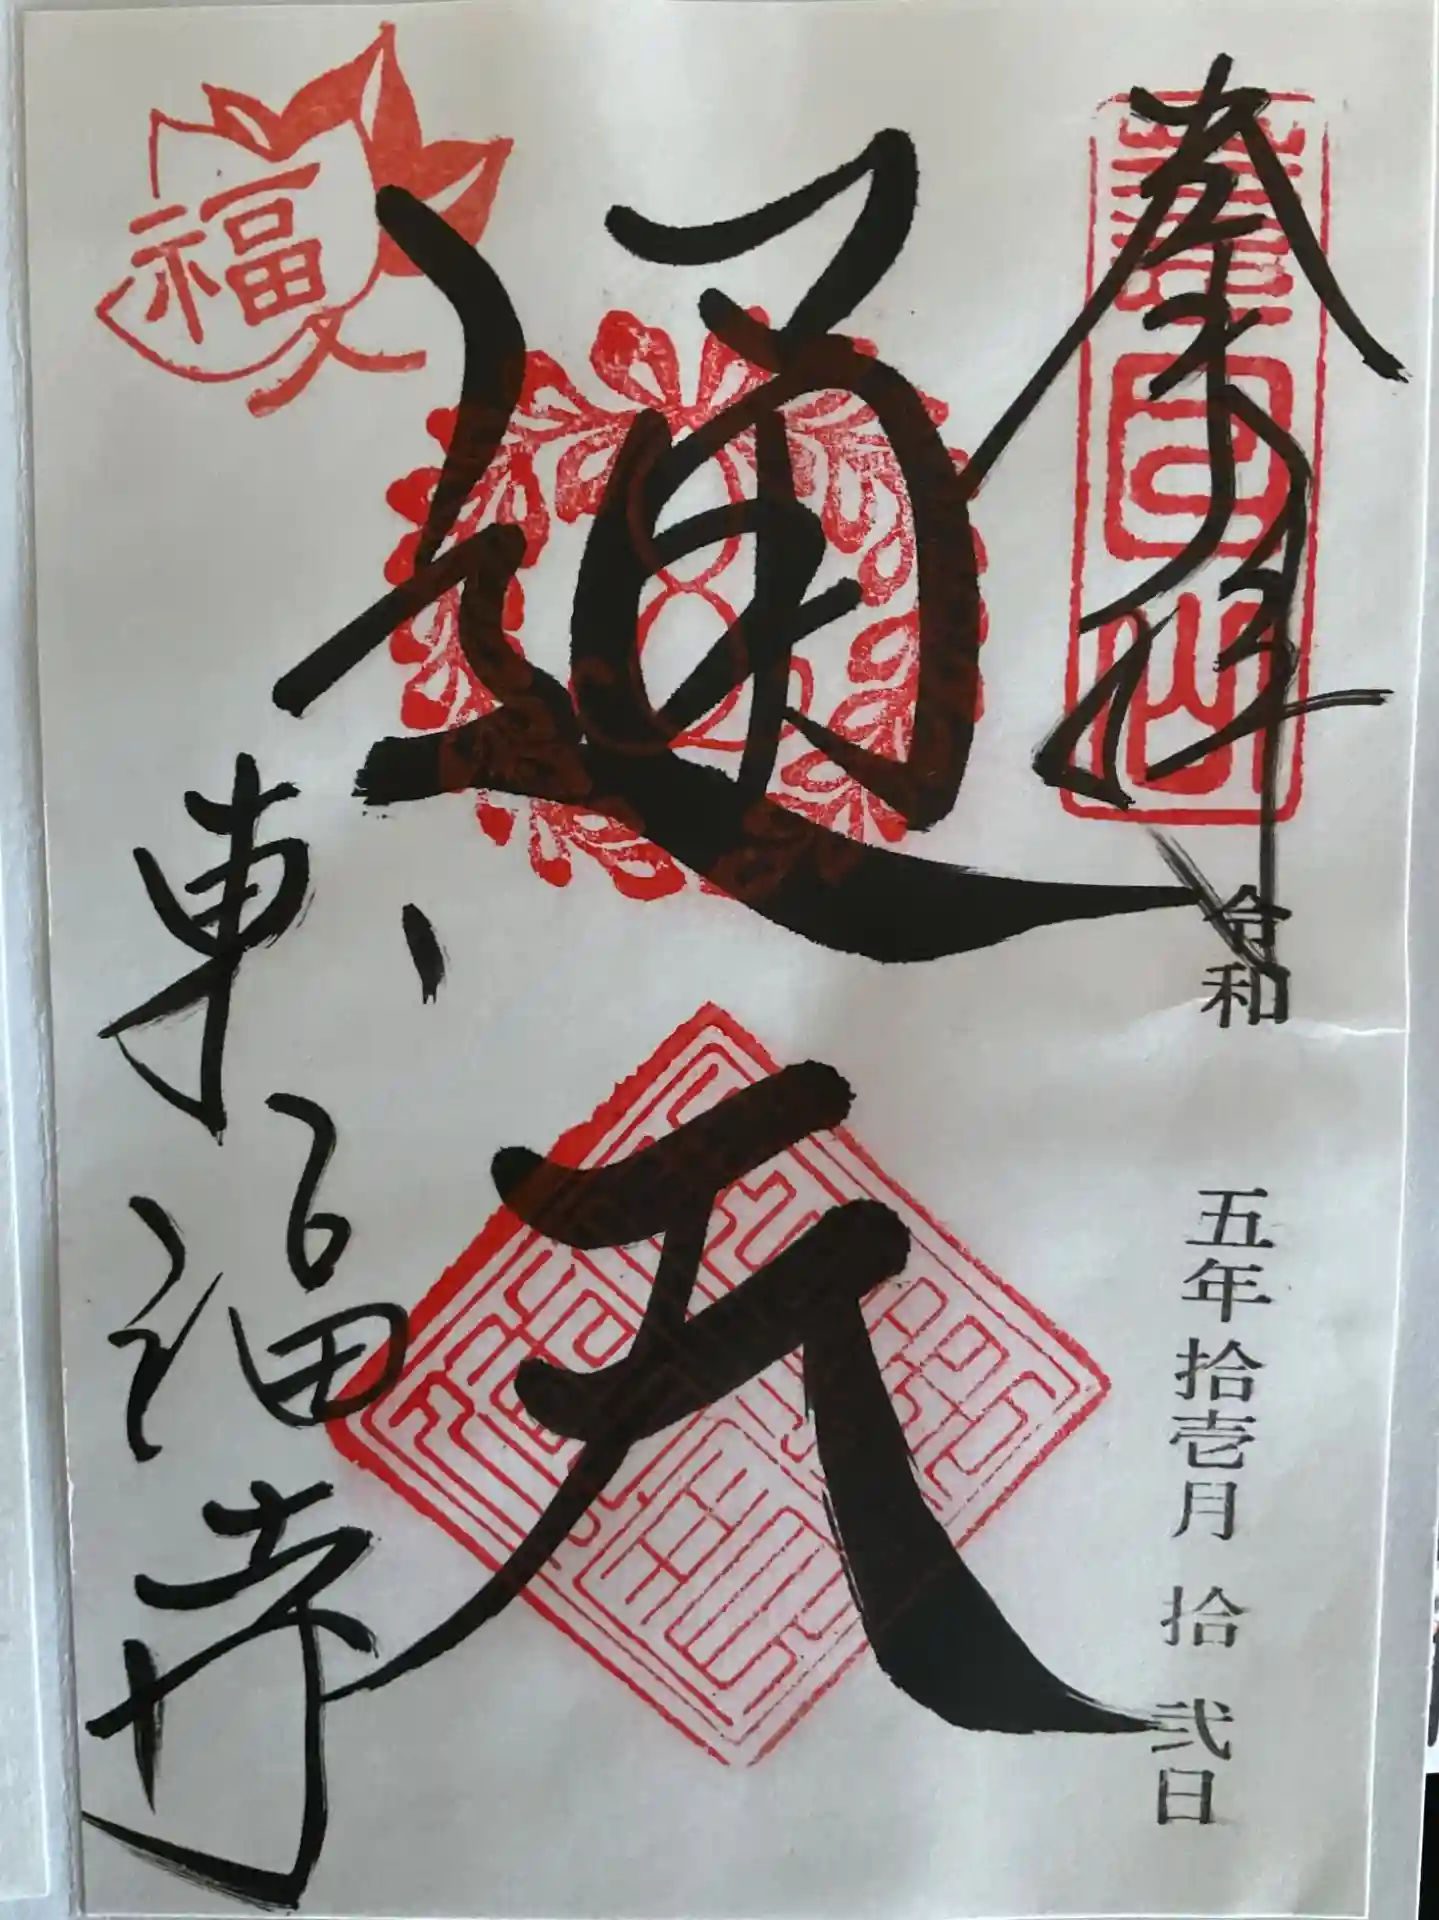 奉拝
慧日山
令和 五年 拾壱月 拾弐日
通天
福
東福寺